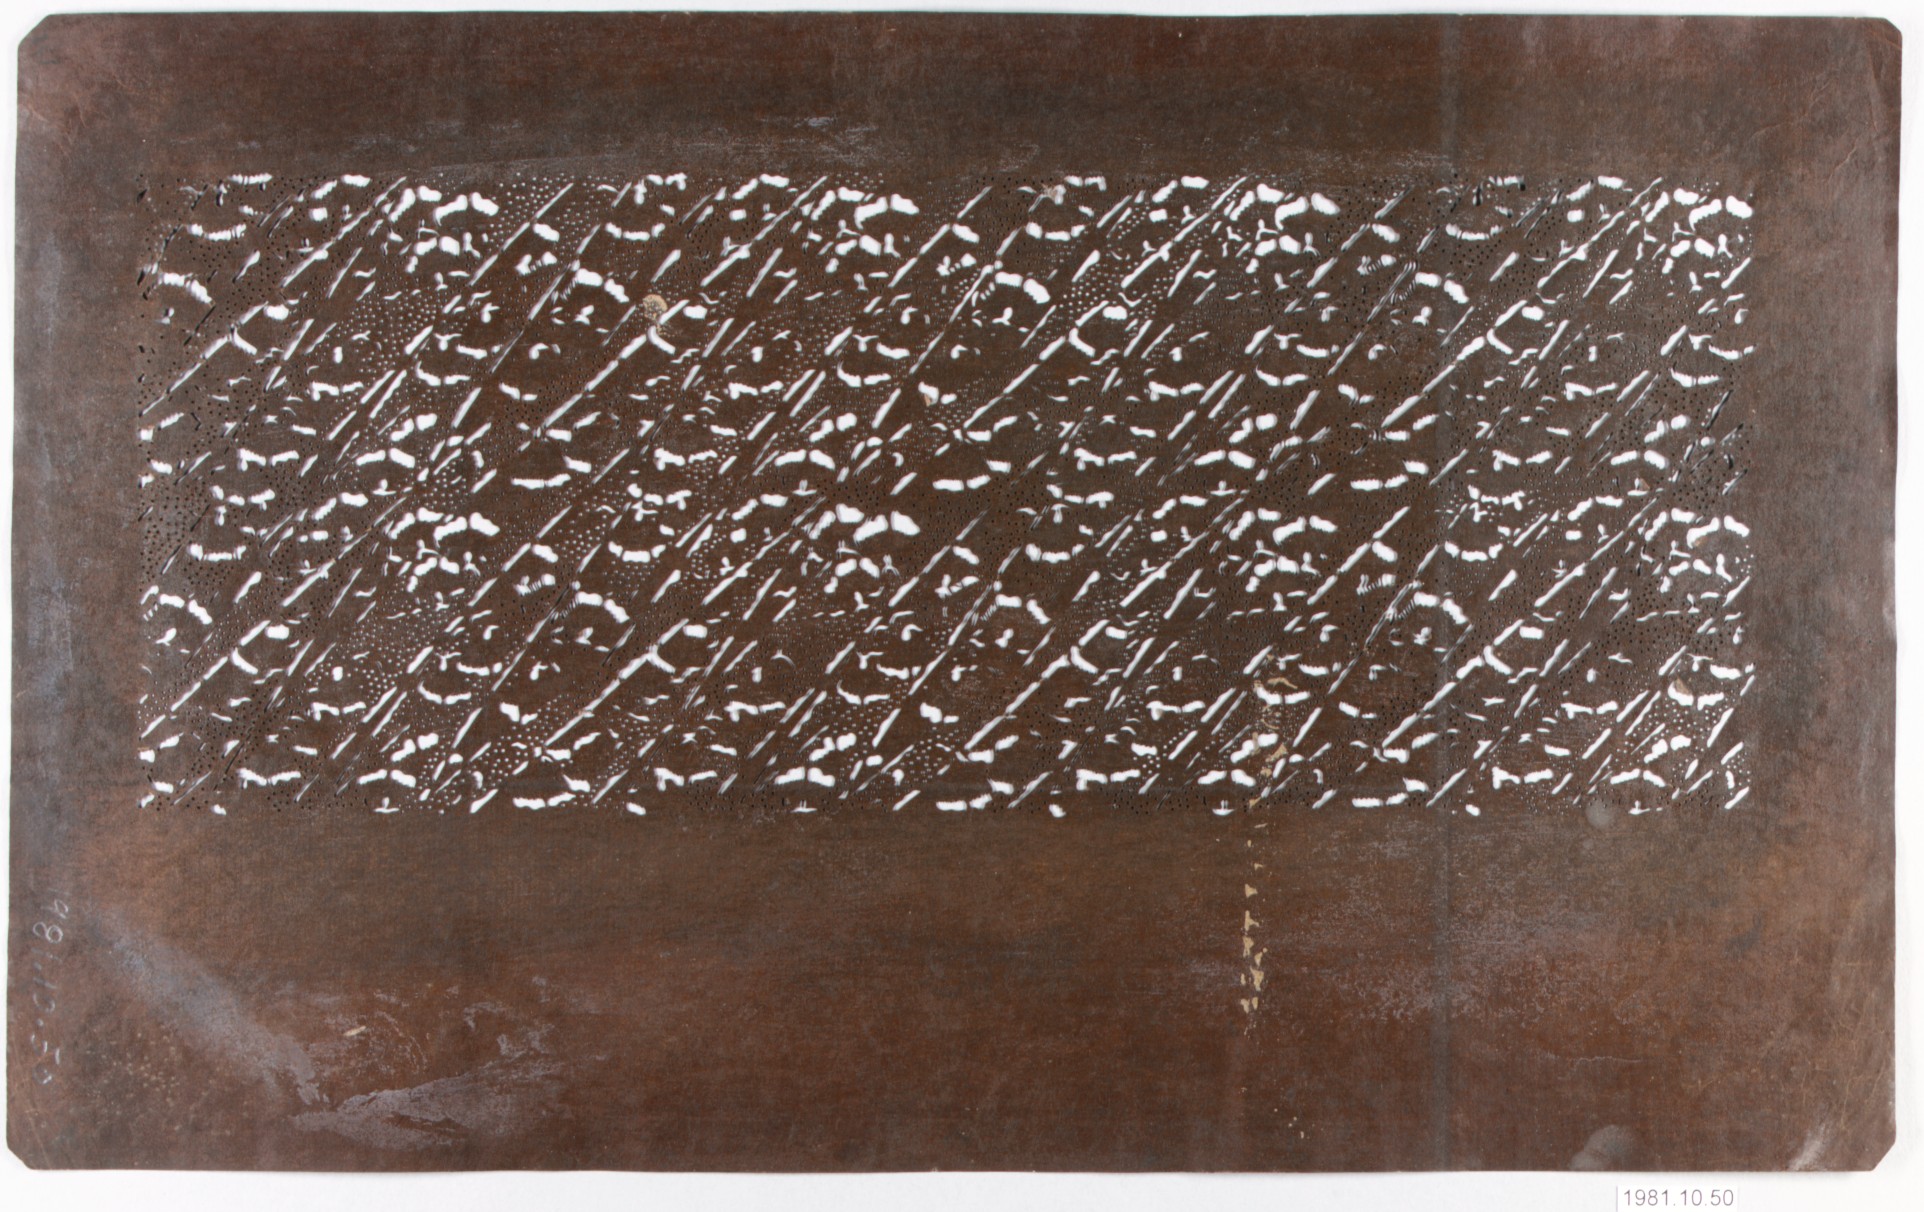 1981.10.50
1981.10.50